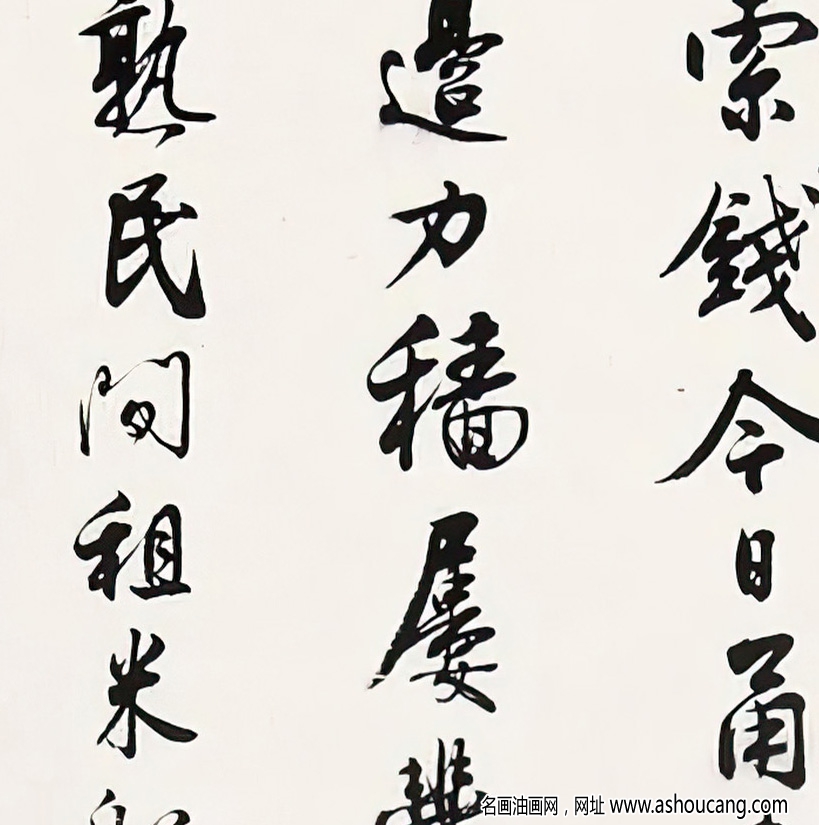 索錢今日甬
邊力穡屢豐
熟民間租米
名画油画网，网址 www.ashoucang.com